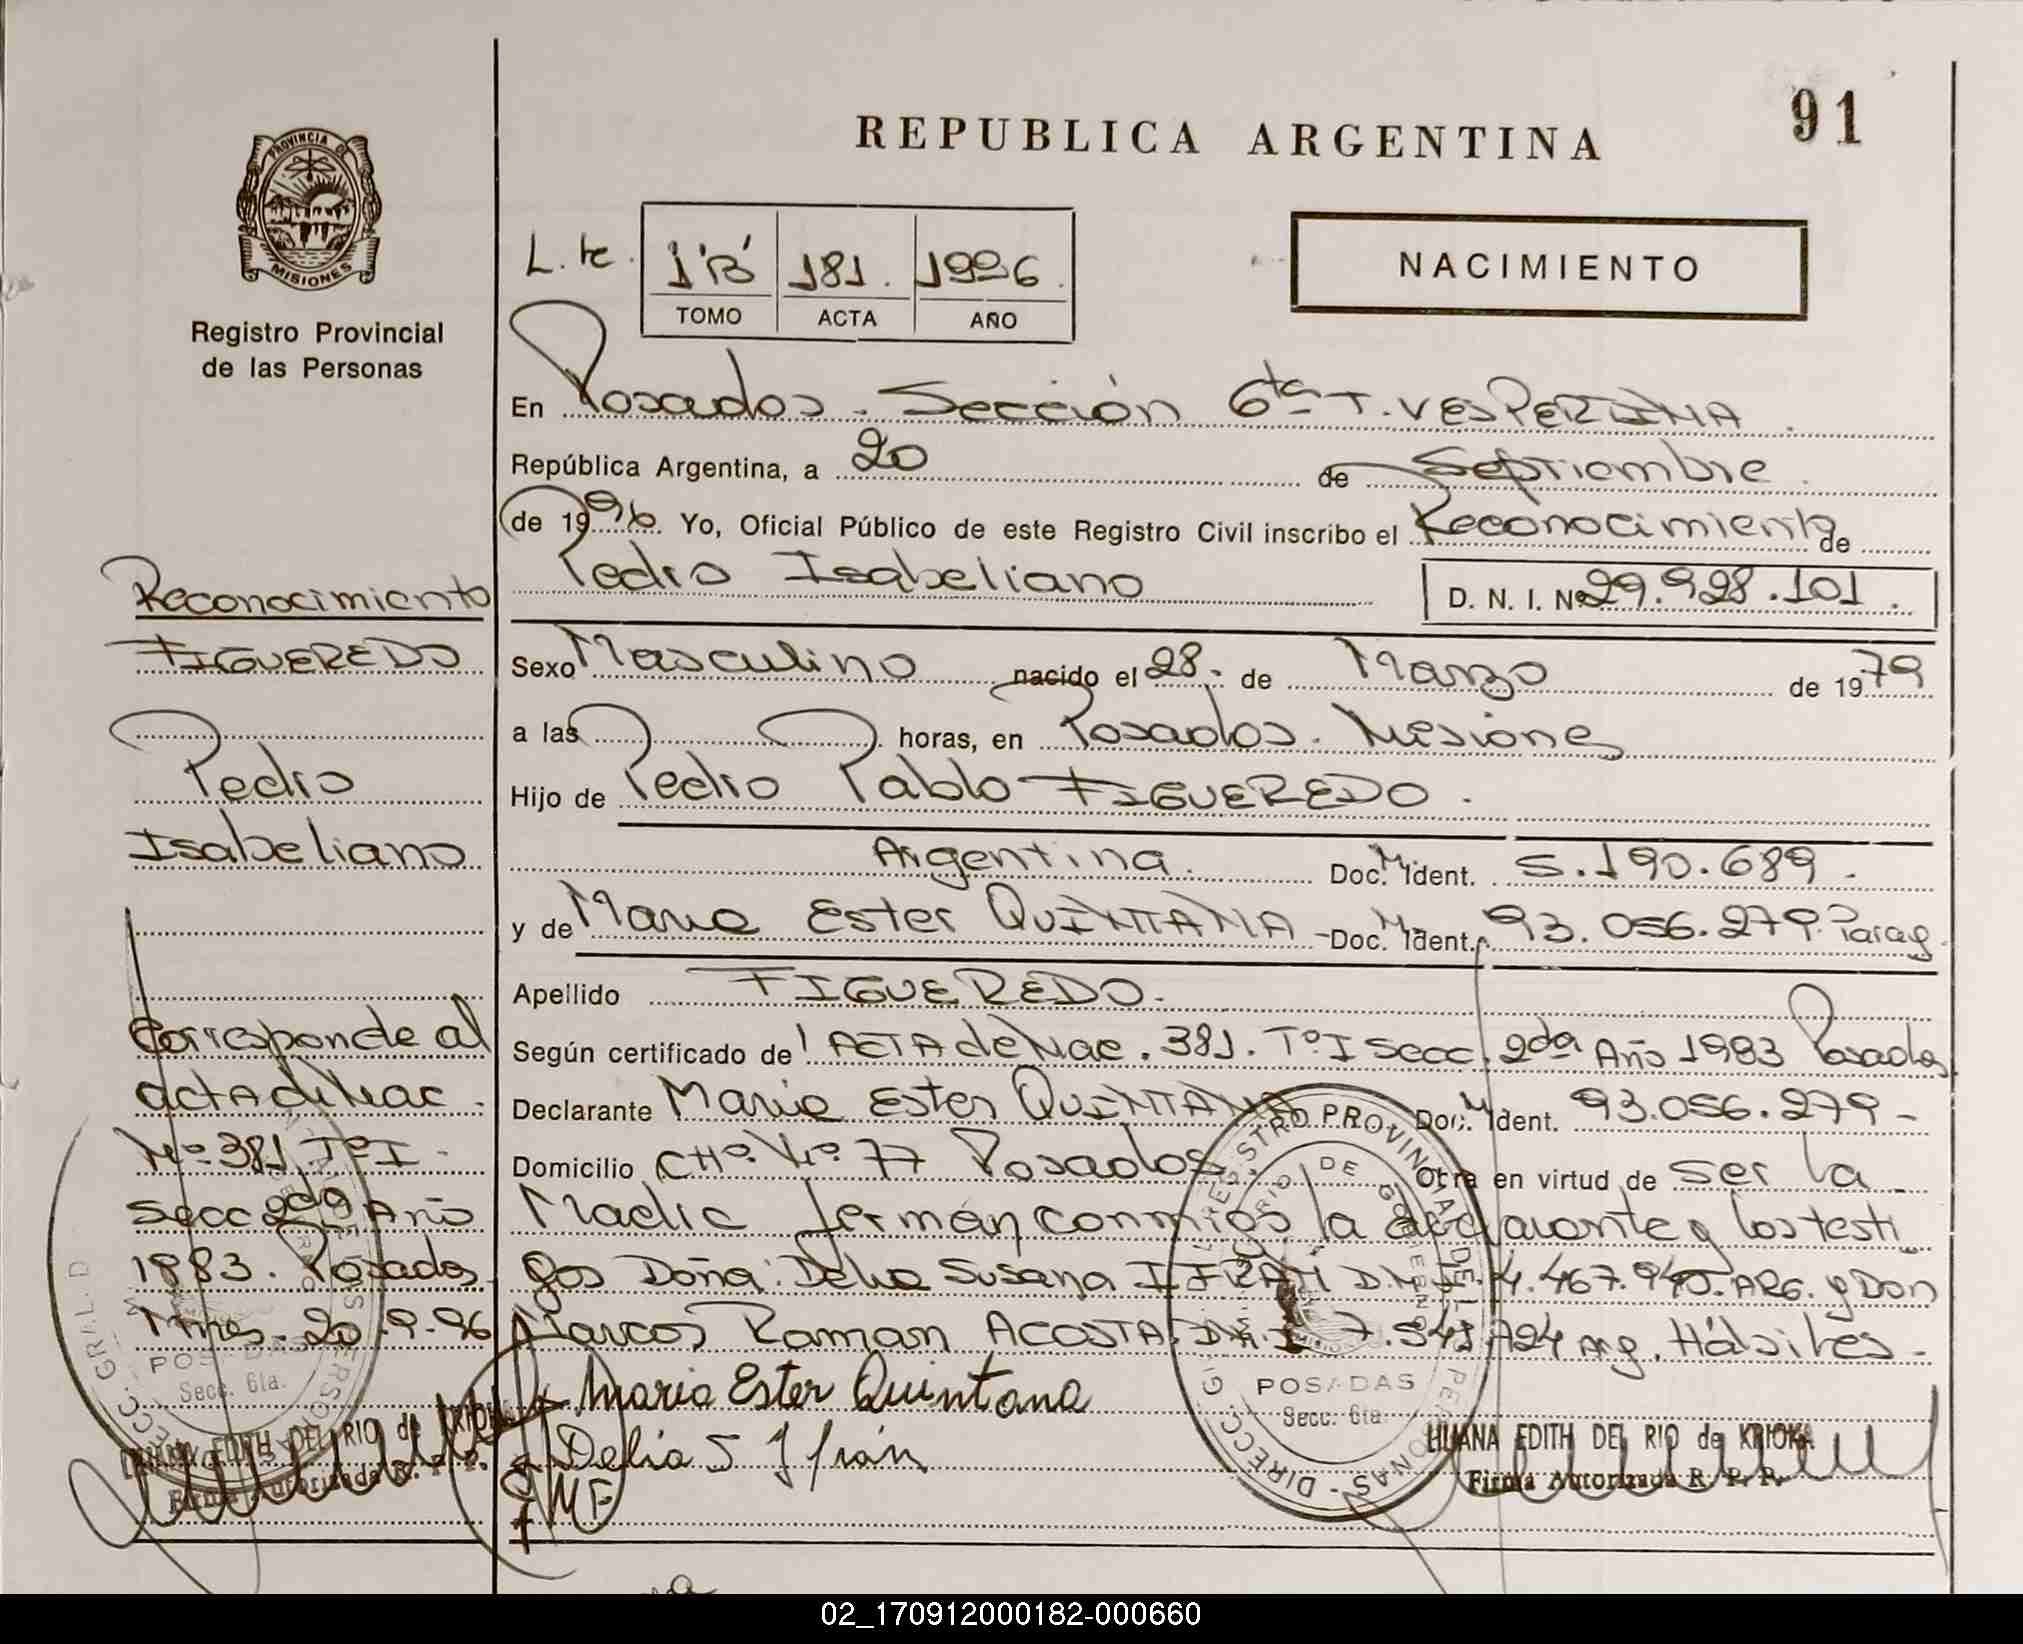 91
REPUBLICA ARGENTINA
PROVINCIA DE
MISIONES
Registro Provincial
de las Personas
L. te. 1'B' 181. 1996.
TOMO ACTA AÑO
NACIMIENTO
En Posadas. Sección 6ta T. VESPERTINA.
República Argentina, a 20 de Septiembre.
de 1996. Yo, Oficial Público de este Registro Civil inscribo el Reconocimiento de
Pedro Isabeliano D. N. I. Nº 29.928.101.
Sexo Masculino nacido el 28. de Marzo de 1979
a las horas, en Posadas. Misiones
Hijo de Pedro Pablo FIGUEREDO.
Argentina. Doc. M. Ident. 5.190.689.
y de Maria Ester QUINTANA - Doc. M. Ident. 93.056.279. Parag.
Apellido FIGUEREDO.
Según certificado de ACTA de Nac. 381. Tº I Secc. 2da Año 1983 Posadas
Declarante Maria Ester QUINTANA Doc. M. Ident. 93.056.279-
Domicilio CHº. Nº. 77 Posadas. Otra en virtud de ser la
Madre firman conmigo la declarante y los testi
gos Doña: Delia Susana IFRAN D.N.I. 4.467.940. ARG. y Don
Marcos Raman ACOSTA. D.N.I. 7.541.724 Arg. Hábiles.
Maria Ester Quintana
Delia S. Ifrán
LILIANA EDITH DEL RIO de KRIOKA
Firma Autorizada R. P. P.
Reconocimiento
FIGUEREDO
Pedro
Isabeliano
Corresponde al
acta de Nac.
Nº 381 Tº I.
Secc 2da Año
1983. Posadas
Mnes. 20.9.96
POSADAS
Secc. 6ta.
LILIANA EDITH DEL RIO de KRIOKA
Firma Autorizada R. P. P.
DIRECC. GRAL. DEL REGISTRO PROVINCIAL DE LAS PERSONAS
MINISTERIO DE GOBIERNO
POSADAS
Secc. 6ta.
02_170912000182-000660